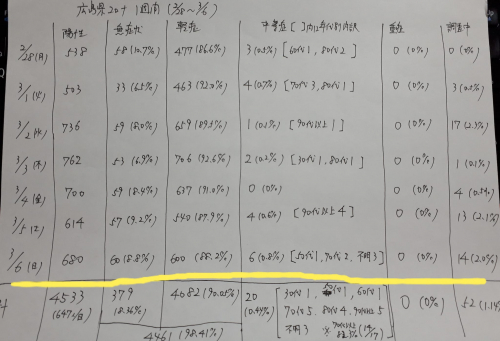 広島県コロナ 1週間 (2/28~3/6)
陽性 無症状 軽症 中等症 [ ]内は年代別内訳 重症 調査中
2/28(月) 538 58(10.7%) 477(86.6%) 3(0.5%) [60代1, 80代2] 0(0%) 0(0%)
3/1(火) 503 33(6.5%) 463(92.0%) 4(0.7%) [70代3, 80代1] 0(0%) 3(0.5%)
3/2(水) 736 59(8.0%) 659(89.5%) 1(0.1%) [90代以上1] 0(0%) 17(2.3%)
3/3(木) 762 53(6.9%) 706(92.6%) 2(0.2%) [30代1, 80代1] 0(0%) 1(0.1%)
3/4(金) 700 59(8.4%) 637(91.0%) 0(0%) 0(0%) 4(0.5%)
3/5(土) 614 57(9.2%) 540(87.9%) 4(0.6%) [90代以上4] 0(0%) 13(2.1%)
3/6(日) 680 60(8.8%) 600(88.2%) 6(0.8%) [50代1, 70代2, 不明3] 0(0%) 14(2.0%)
計 4533 379 4082(90.05%) 20 [30代1, 50代1, 60代1 0(0%) 52(1.14%)
(647人/日) (8.36%) (0.44%) 70代5, 80代4, 90代以上5
4461(98.41%) 不明3 ※70代以上 82.3% (14/17)